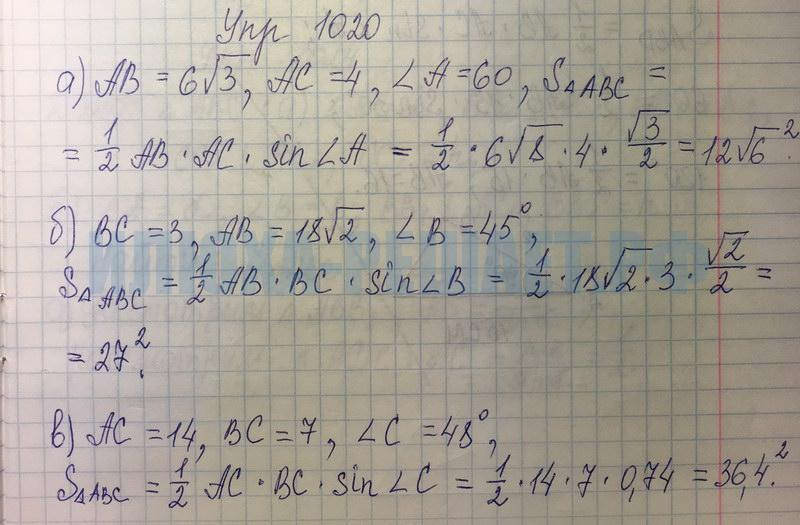 Упр 1020
а) AB = 6√3, AC = 4, ∠A = 60, S△ABC =
= 1/2 AB · AC · sin∠A = 1/2 · 6√8 · 4 · √3/2 = 12√6².
б) BC = 3, AB = 18√2, ∠B = 45°,
S△ABC = 1/2 AB · BC · sin∠B = 1/2 · 18√2 · 3 · √2/2 =
= 27².
в) AC = 14, BC = 7, ∠C = 48°,
S△ABC = 1/2 AC · BC · sin∠C = 1/2 · 14 · 7 · 0,74 = 36,4.²